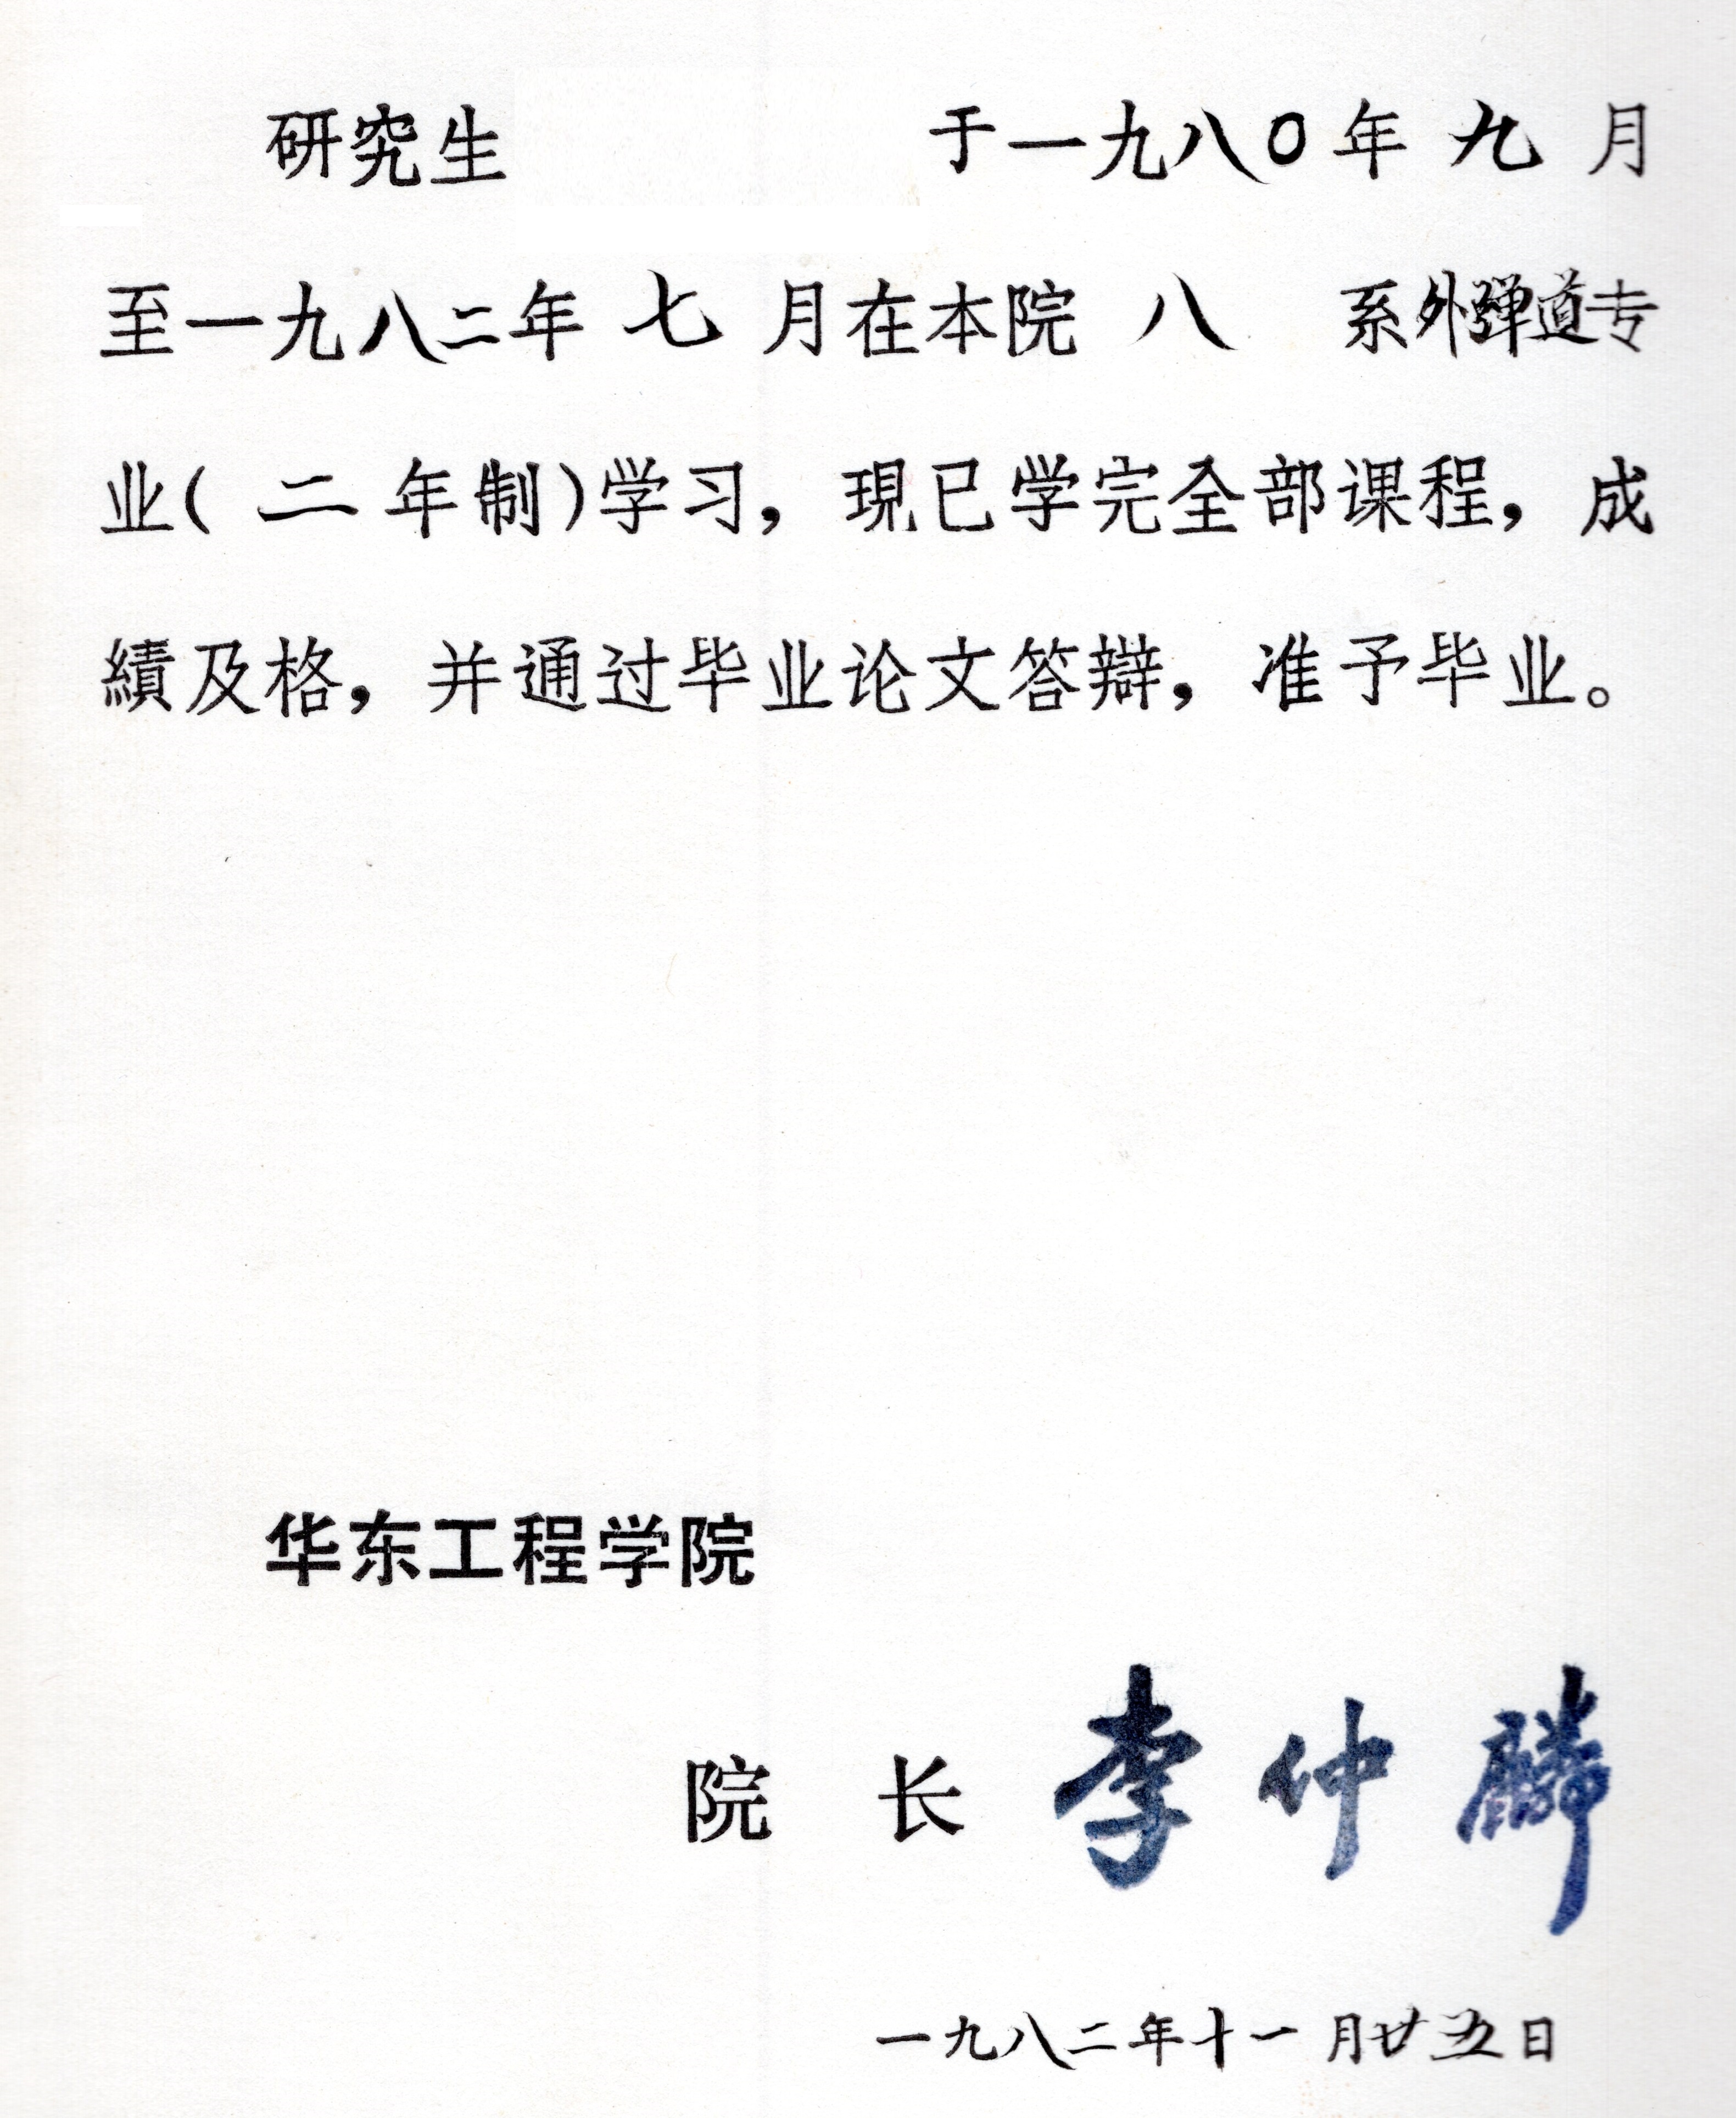 研究生 于一九八〇年九月
至一九八二年七月在本院八系外弹道专
业(二年制)学习，現已学完全部课程，成
績及格，并通过毕业论文答辯，准予毕业。
华东工程学院
院长 李仲麟
一九八二年十一月廿五日